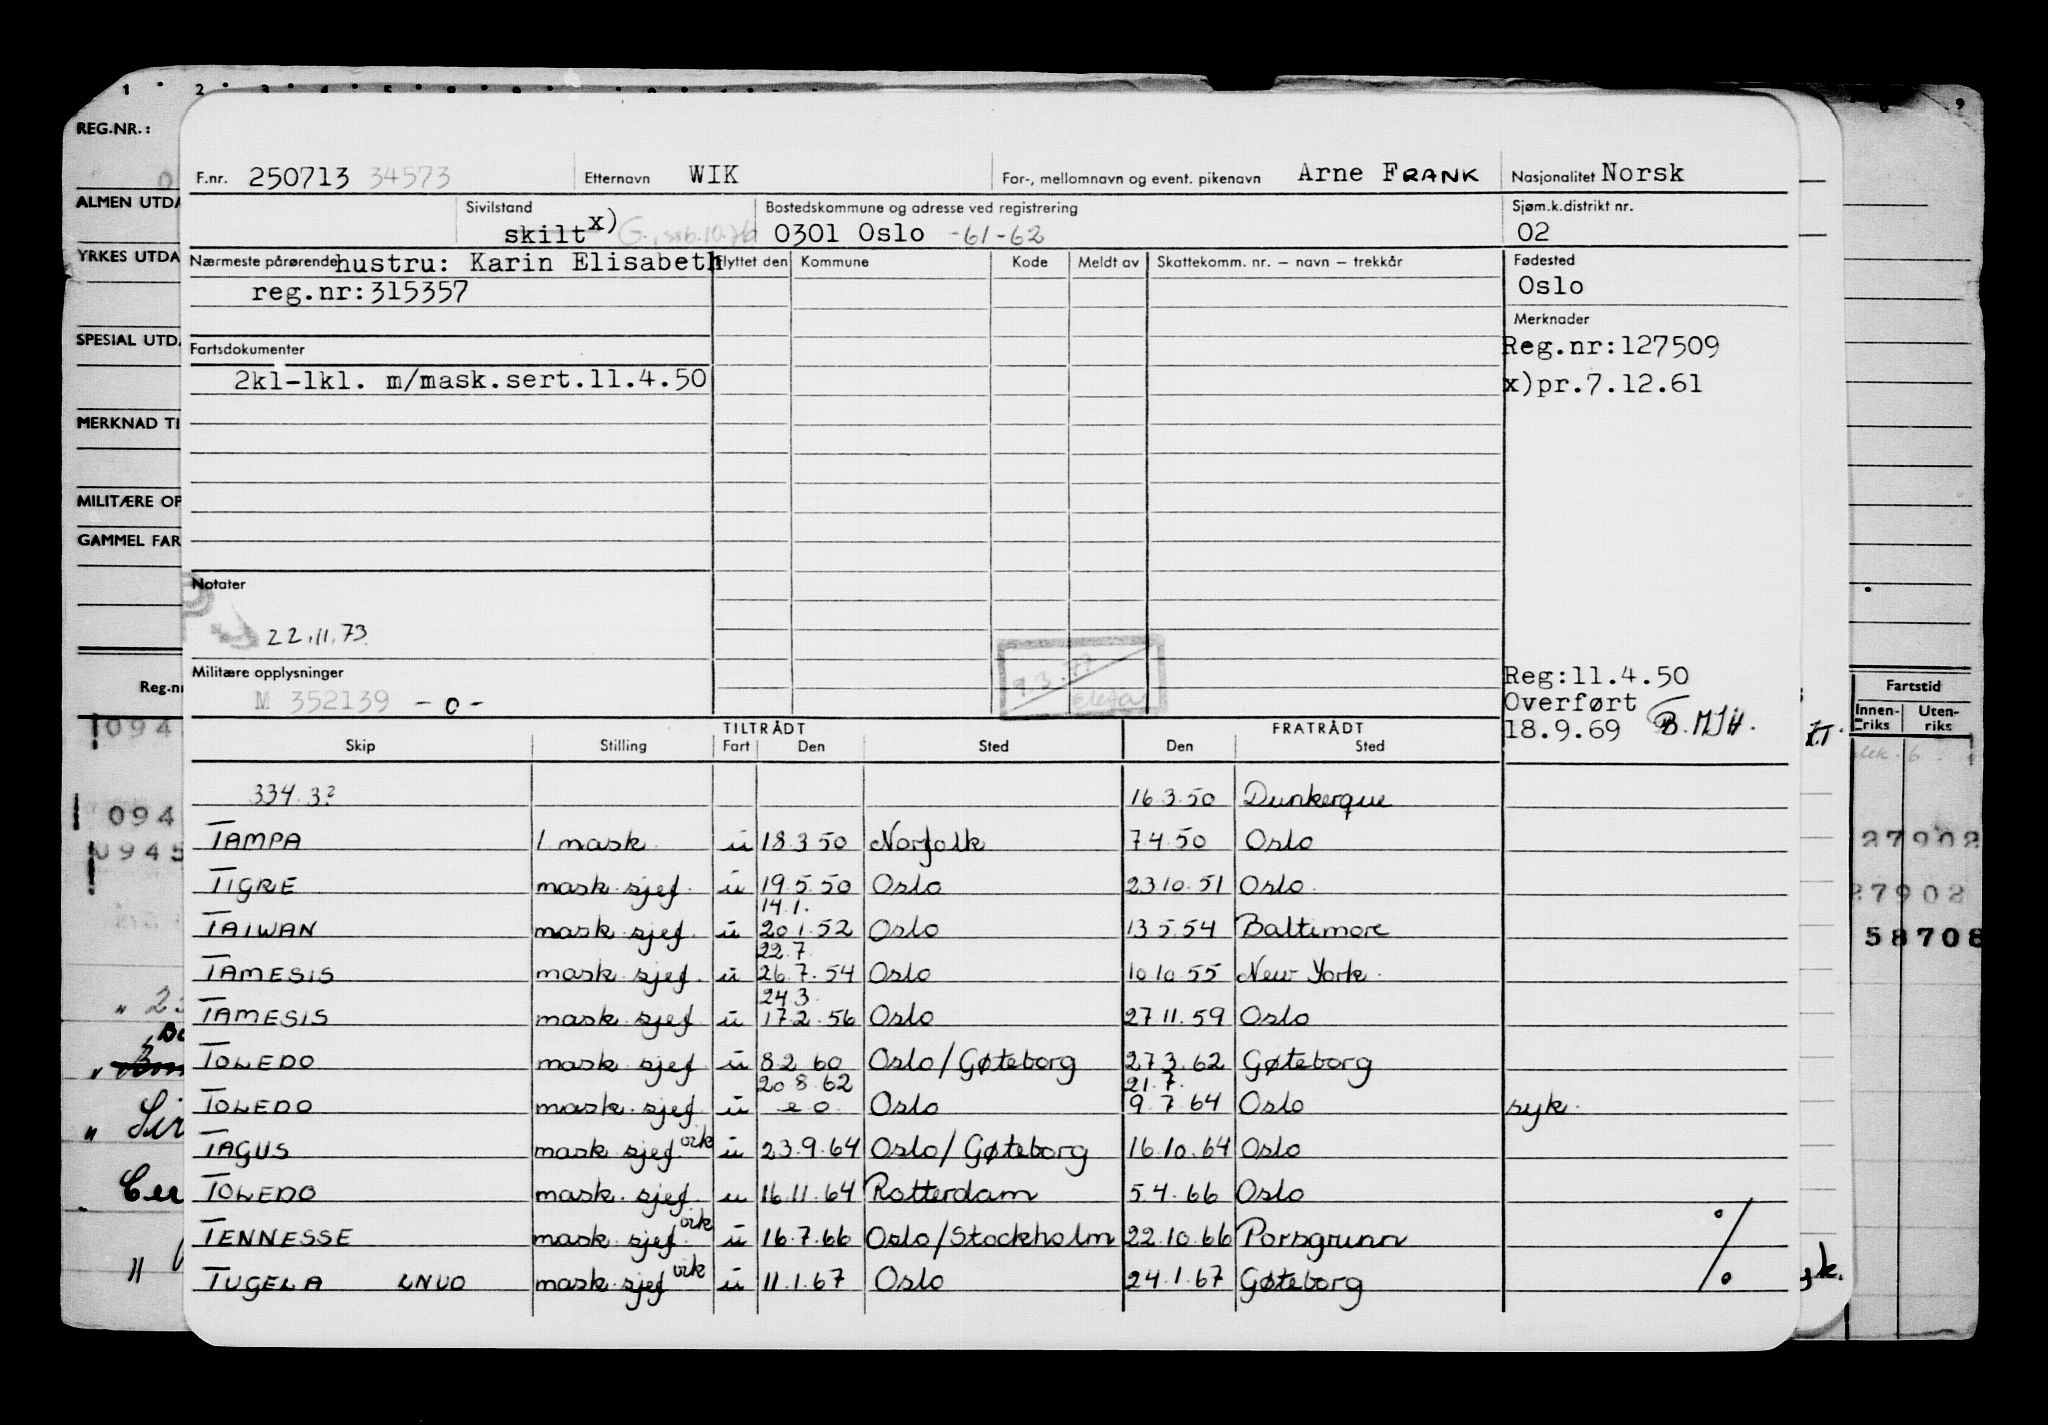 1 2 3 4 5 8 9
REG.NR.:
F.nr. 250713 34573 Etternavn WIK For-, mellomnavn og event. pikenavn Arne FRANK Nasjonalitet Norsk
ALMEN UTDA
Sivilstand Bostedskommune og adresse ved registrering Sjøm.k.distrikt nr.
skilt x) 0301 Oslo -61-62 02
YRKES UTDA
Nærmeste pårørende hustru: Karin Elisabeth Flyttet den Kommune Kode Meldt av Skattekomm. nr. – navn – trekkår Fødested
reg.nr:315357 Oslo
Merknader
SPESIAL UTDA
Fartsdokumenter Reg.nr:127509
2kl-1kl. m/mask.sert.11.4.50 x)pr.7.12.61
MERKNAD TI
MILITÆRE OP
GAMMEL FAR
Notater
22.11.73
Militære opplysninger Reg:11.4.50
M 352139 -o- Overført
18.9.69 B.MJH.
Reg.nr
Fartstid
Innen-riks Uten-riks
TILTRÅDT FRATRÅDT
Skip Stilling Fart Den Sted Den Sted
334.3? 16.3.50 Dunkerque
TAMPA 1 mask. u 18.3.50 Norfolk 7.4.50 Oslo
TIGRE mask.sjef. u 19.5.50 Oslo 23.10.51 Oslo
14.1.
TAIWAN mask.sjef. u 20.1.52 Oslo 13.5.54 Baltimore
22.7.
TAMESIS mask.sjef. u 26.7.54 Oslo 10.10.55 New York
24.3.
TAMESIS mask.sjef u 17.2.56 Oslo 27.11.59 Oslo
TOLEDO mask sjef u 8.2.60 Oslo/Gøteborg 27.3.62 Gøteborg
20.8.62 21.7.
TOLEDO mask.sjef. u e.o. Oslo 9.7.64 Oslo syk.
TAGUS mask sjef. vik u 23.9.64 Oslo/Gøteborg 16.10.64 Oslo
TOLEDO mask.sjef. u 16.11.64 Rotterdam 5.4.66 Oslo
TENNESSE mask.sjef. vik u 16.7.66 Oslo/Stockholm 22.10.66 Porsgrunn
TUGELA LNUO mask sjef vik u 11.1.67 Oslo 24.1.67 Gøteborg
094
094
0945
27902
27902
58708